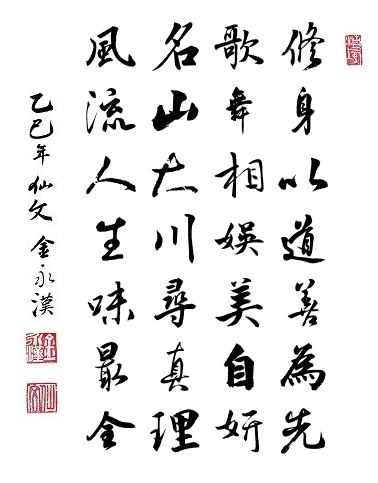 修身以道善為先
歌舞相娛美自妍
名山大川尋真理
風流人生味最全
乙巳年仙文金永漢